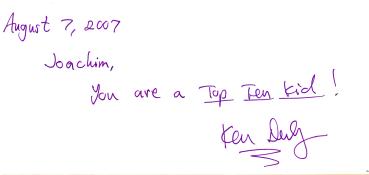 August 7, 2007
Joachim,
You are a Top Ten Kid!
Ken